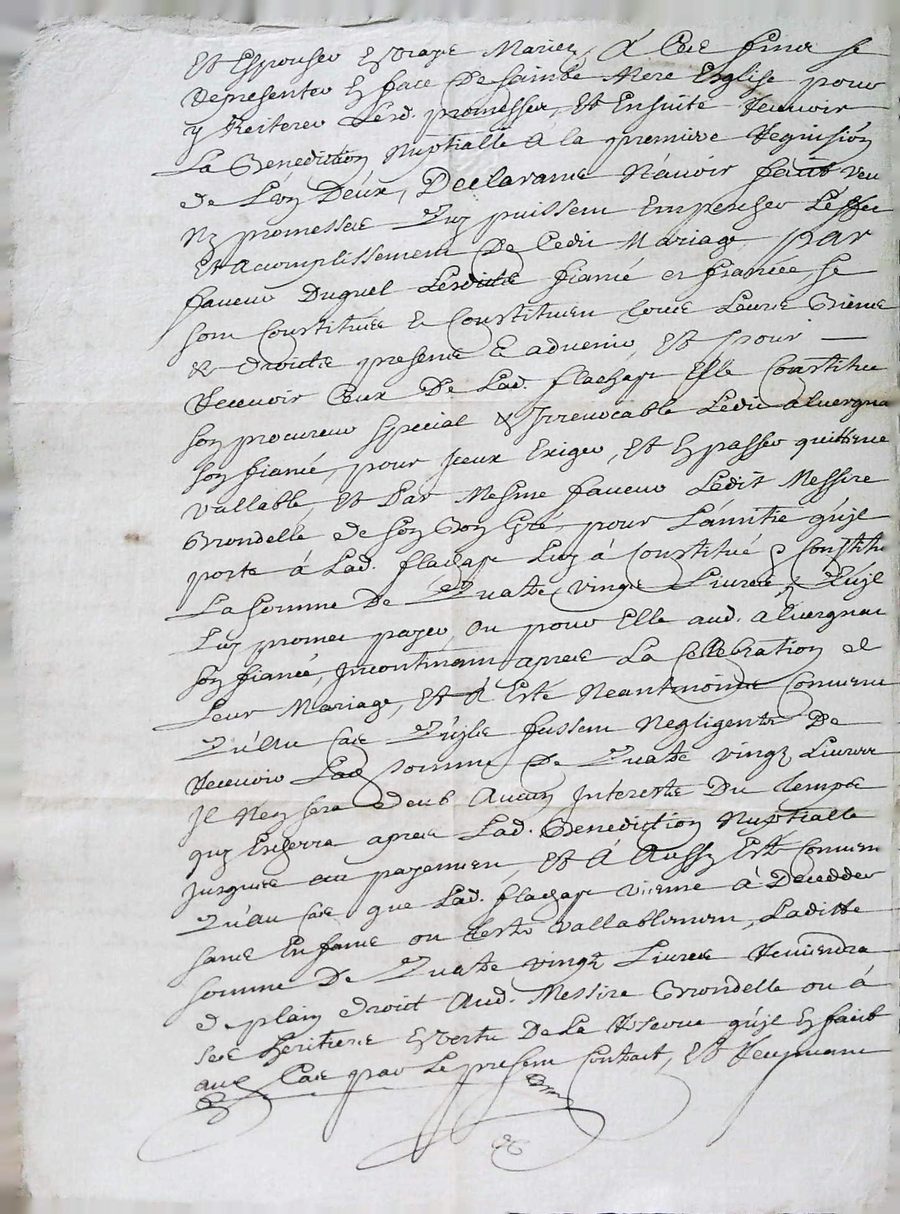 Et Espouser Et vraye Mariez, A Ces fins se
representer En face De sainte Mere Esglise pour
y Reiterer Lesd. promesses, Et Ensuite Recevoir
La Benediction Nuptialle A la premiere Requision
de L'un Deux, Declarant N'avoir faict veu
Ny promesse Quy puissent Empescher L'effet
Et accomplissement De Cedit Mariage, par
faveur Duquel Lesdits fiancé et fiancée se
sont Constitués & Constituent tous Leurs Biens
& droits presents & advenir, Et pour
Recevoir Ceux De Lad. flachat Elle Constitue
son procureur special & Irrevocable Ledit alvergna
son fiancé, pour Iceux Exiger, Et En passer quittence
vallable, Et Par Mesme faveur Ledit Messire
Grondelle de son Bon Gré, pour L'amitié qu'il
porte à Lad. flachat Luy à Constitué & Constitue
La somme De Quatre vingt Livres, Qu'il
Luy promet payer, ou pour Elle aud. alvergnat
son fiancé, Incontinant apres La Cellebration de
Leur Mariage, Et A Esté Neantmoins Convenu
Qu'au Cas Qu'ils fussent Negligents De
Recevoir Lad. somme De Quatre vingt Livres
Il N'en sera deub Aucun Interests Du temps
quy Enserra apres Lad. Benediction Nuptialle
Jusques au payement, Et A Aussy Esté Conven
Qu'au Cas que Lad. flachat vienne à Decedder
sans Enfants ou teste vallablement, Laditte
somme De Quatre vingt Livres Reviendra
de plain droict Aud. Messire Grondelle ou à
ses heritiers En vertu De La Reserve qu'il En faict
aud. Cas par Le present Contract, Et